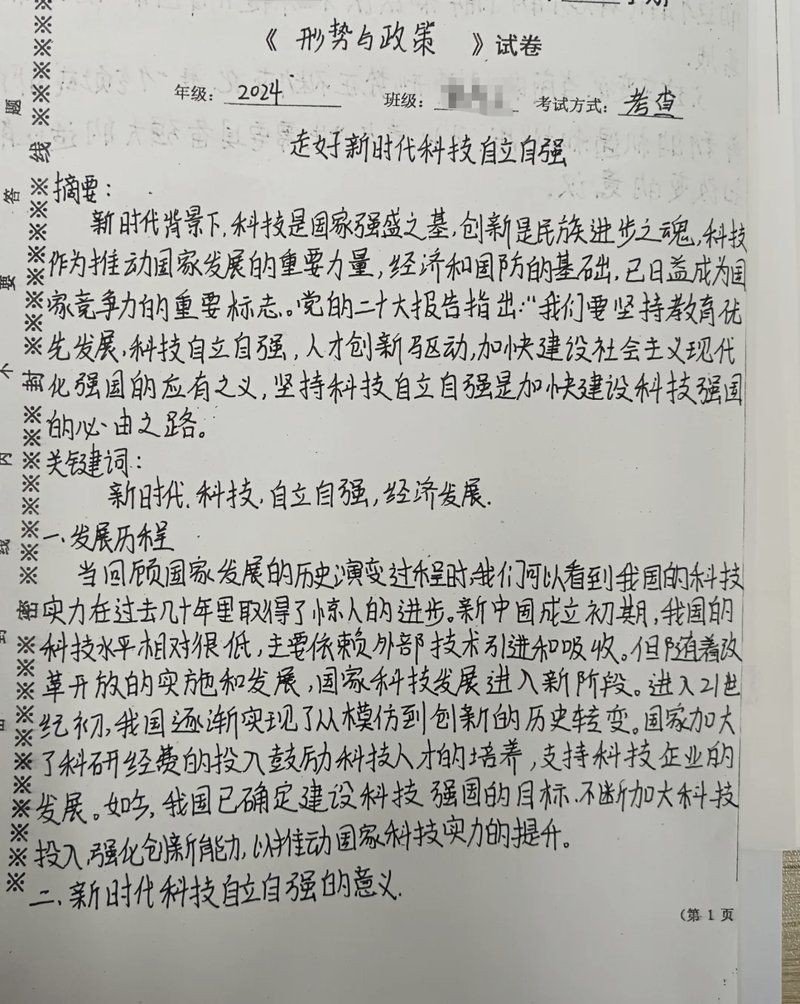 《 形势与政策 》试卷
年级: 2024 班级: 考试方式: 考查
走好新时代科技自立自强
摘要:
新时代背景下,科技是国家强盛之基,创新是民族进步之魂,科技
作为推动国家发展的重要力量,经济和国防的基础,已日益成为国
家竞争力的重要标志。党的二十大报告指出:"我们要坚持教育优
先发展,科技自立自强,人才创新驱动,加快建设社会主义现代
化强国的应有之义,坚持科技自立自强是加快建设科技强国
的必由之路。
关键词:
新时代.科技.自立自强,经济发展.
一.发展历程
当回顾国家发展的历史演变过程时,我们可以看到我国的科技
实力在过去几十年里取得了惊人的进步。新中国成立初期,我国的
科技水平相对很低,主要依赖外部技术引进和吸收。但随着改
革开放的实施和发展,国家科技发展进入新阶段。进入21世
纪初,我国逐渐实现了从模仿到创新的历史转变。国家加大
了科研经费的投入鼓励科技人才的培养,支持科技企业的
发展。如今,我国已确定建设科技强国的目标.不断加大科技
投入,强化创新能力,以推动国家科技实力的提升。
二.新时代科技自立自强的意义.
(第 1 页
※※※※线※※※※※※封※※※※※※密※※※※※※
答
要
不
内
线